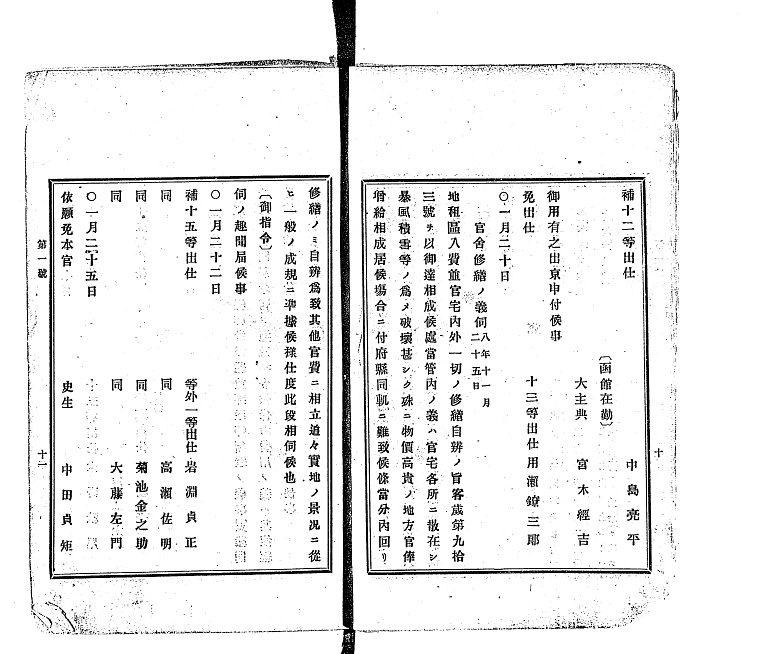 十
補十二等出仕
中島亮平
〔函館在勤〕
大主典 宮木經吉
御用有之出京申付候事
十三等出仕 用瀬鐐三郎
免出仕
〇一月二十日
官舍修繕ノ義伺 八年十一月二十五日
地租區入費並官宅內外一切ノ修繕自辨ノ旨客歲第九拾
三號ヲ以御達相成候處當管內ノ義ハ官宅各所ニ散在シ
暴風積雪等ノ爲メ破壞甚シク殊ニ物價高貴ノ地方官俸
增給相成居候塲合ニ付府縣同軌ニ難致候條當分內回リ
修繕ノミ自辨爲致其他官費ニ相立追々實地ノ景况ニ從
ヒ一般ノ成規ニ準據候樣仕度此段相伺候也
〔御指令〕
伺ノ趣聞屆候事
〇一月二十二日
補十五等出仕 等外一等出仕 岩淵貞正
同 同 高瀨佐明
同 同 菊池金之助
同 同 大藤左門
〇一月二十五日
依願免本官 史生 中田貞矩
第一號
十一